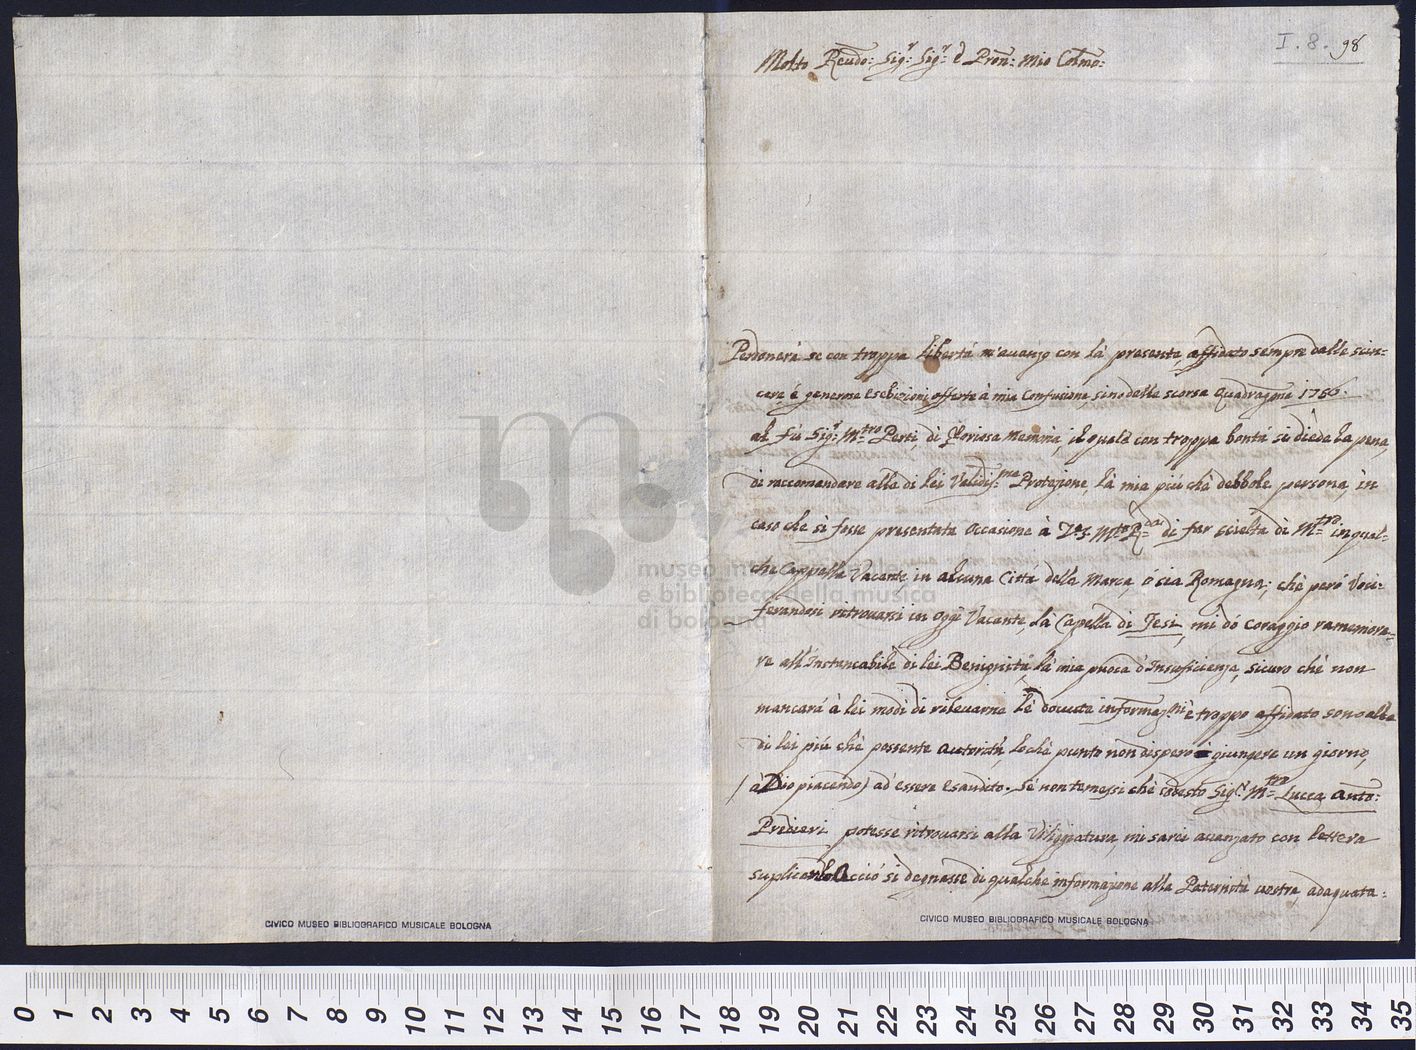 I. 8. 98
Molto Reudo: Sig:r Sig:r e Pron: mio Colmo:
Perdonerà se con troppa libertà m'auanzo con là presente, affidato sempre dalle scin-
cere é generose esebizioni offerte à mia Confusione sino dalla scorsa Quadragma 1756.
al fù Sig:r Mtro Perti, di Gloriosa Memoria, il quale con troppa bontà si diede la pena,
di raccomandare alla di lei Validis:ma Protezione, là mia più chè debbole persona, in
caso che si fosse presentata occasione à V.S. Mto Rda di far scielta di Mtro in qual-
che Cappella Vacante in alcuna Citta della Marca, ó sia Romagna; chè peró Voci-
ferandosi ritrouarsi in oggi Vacante, là Capella di Jesi, mi dó Coraggio ramemora-
re all'Instancabile di lei Benignità, là mia puoca ó Insuficienza, sicuro chè non
mancarà à lei modi di rileuarne le douute informazni è troppo affidato sono alla
di lei più chè possente autorità, lochè punto non dispero i giungere un giorno,
(à Dio piacendo) ad'essere esaudito. Sé non temessi chè codesto Sig:r Mtro Lucca Anto:
Predieri potesse ritrouarsi alla Viligiatura, mi sarei auanzato con lettera
suplicando Acció si degnasse di qualche informazione alla Paternità uostra, adaquata:
CIVICO MUSEO BIBLIOGRAFICO MUSICALE BOLOGNA
CIVICO MUSEO BIBLIOGRAFICO MUSICALE BOLOGNA
museo internazionale
e biblioteca della musica
di bologna
0 1 2 3 4 5 6 7 8 9 10 11 12 13 14 15 16 17 18 19 20 21 22 23 24 25 26 27 28 29 30 31 32 33 34 35